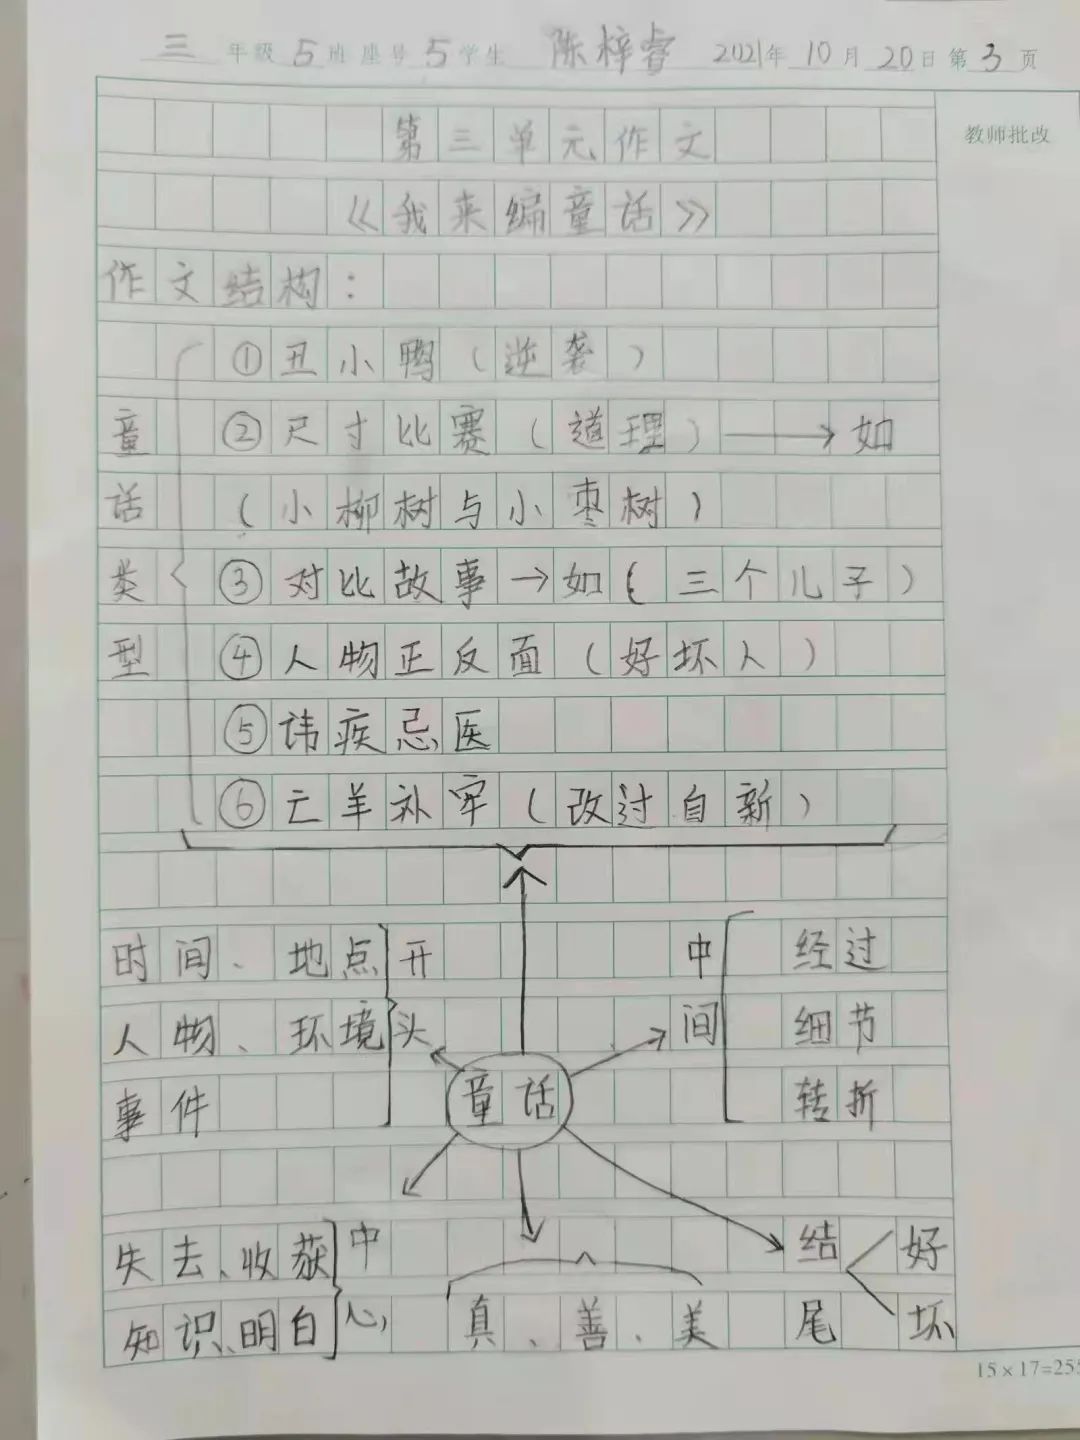 三年级5班座号5学生 陈梓睿 2021年10月20日第3页
教师批改
第三单元作文
《我来编童话》
作文结构：
童话类型
①丑小鸭（逆袭）
②尺寸比赛（道理）→如
（小柳树与小枣树）
③对比故事→如（三个儿子）
④人物正反面（好坏人）
⑤讳疾忌医
⑥亡羊补牢（改过自新）
时间、地点
人物、环境
事件
开头
中间
经过
细节
转折
童话
失去、收获
知识、明白
中心
真、善、美
结尾
好
坏
15×17=255